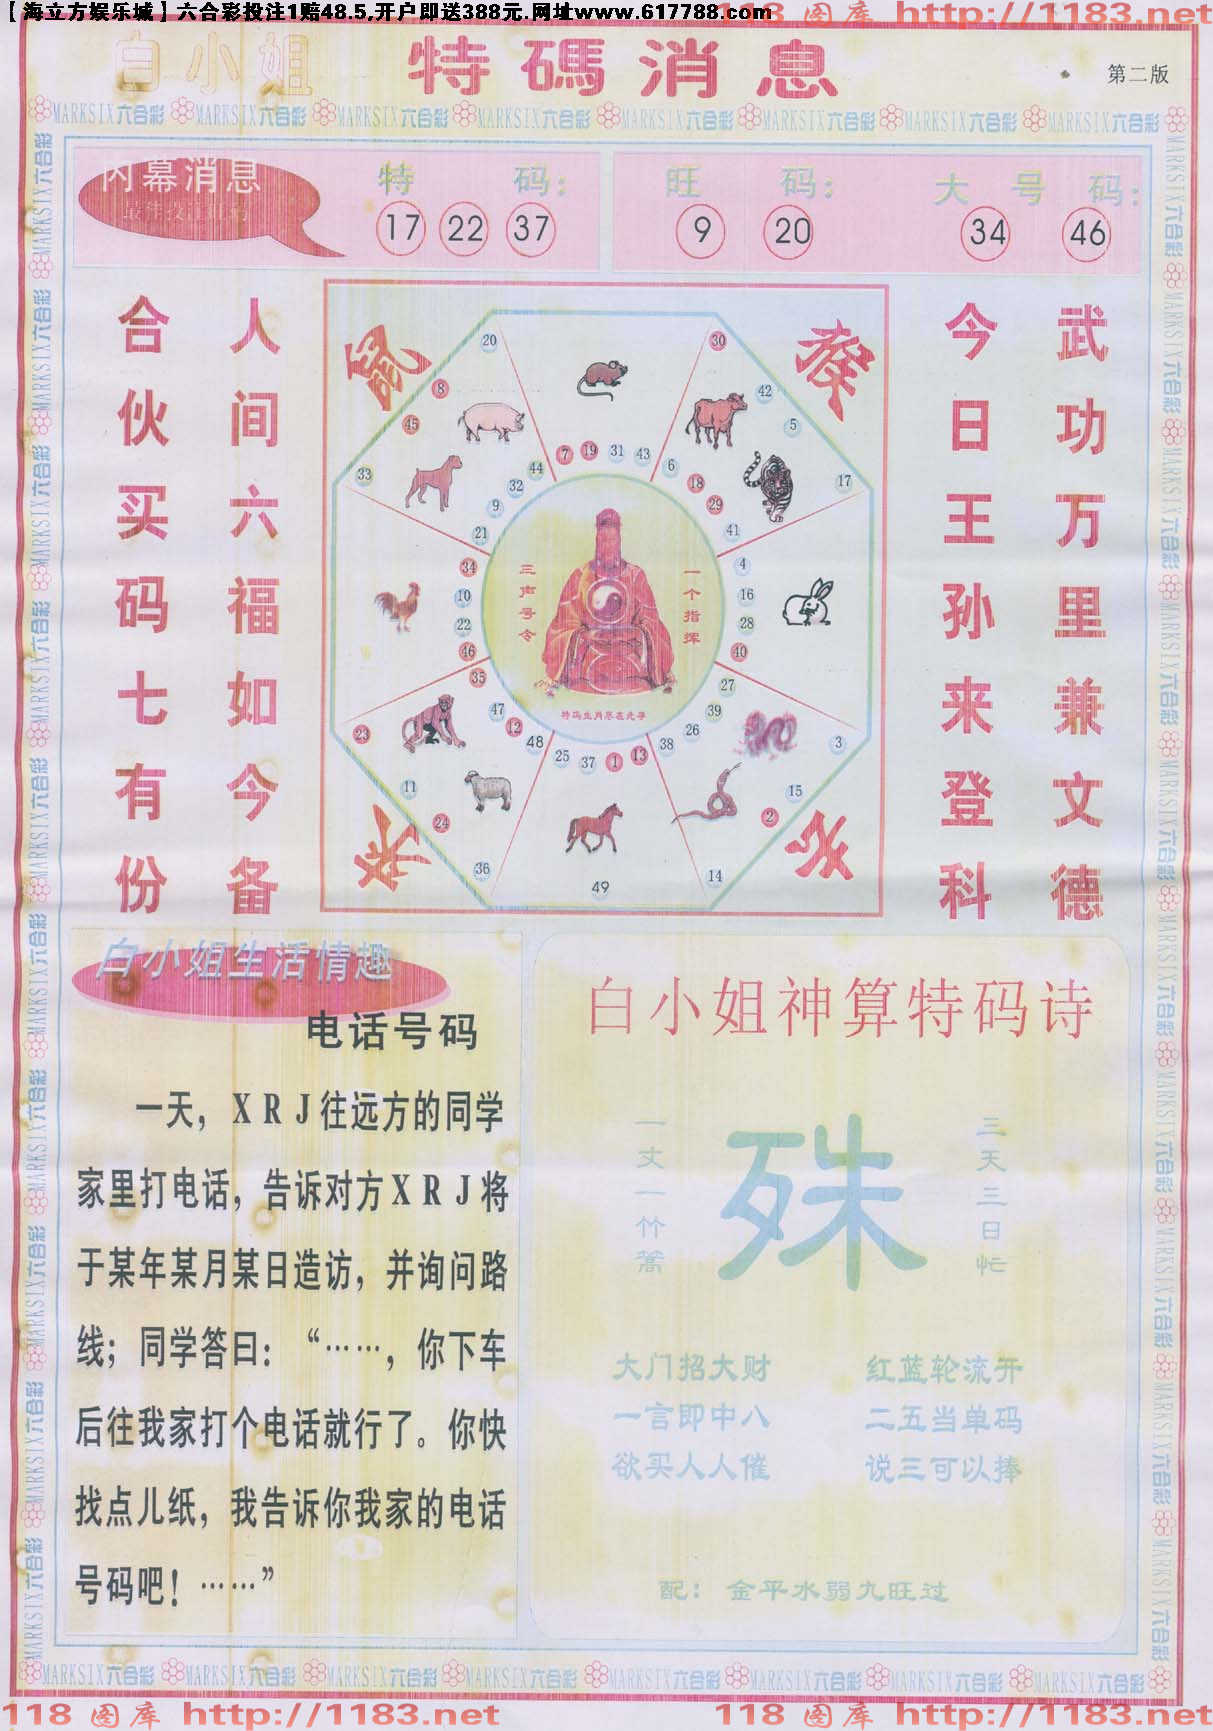 【海立方娱乐城】六合彩投注1赔48.5,开户即送388元.网址www.617788.com
118 图库 http://1183.net
白小姐 特碼消息
第二版
MARKSIX六合彩 MARKSIX六合彩 MARKSIX六合彩 MARKSIX六合彩 MARKSIX六合彩 MARKSIX六合彩 MARKSIX六合彩 MARKSIX六合彩
内幕消息
特 码:
17 22 37
旺 码:
9 20
大 号 码:
34 46
合伙买码七有份
人间六福如今备
今日王孙来登科
武功万里兼文德
鼠
猴
羊
龙
20 8 45 33
30 42 5 17
7 19 31 43
44 32 9 21
6 18 29 41
34 10 22 46
4 16 28 40
35 47 12 48
27 39 26 38
25 37 1 13
23 11 24 36
3 15 2 14
49
三声号令
一个指挥
特码生肖尽在先手
白小姐生活情趣
电话号码
一天，XRJ往远方的同学
家里打电话，告诉对方XRJ将
于某年某月某日造访，并询问路
线；同学答曰：“……，你下车
后往我家打个电话就行了。你快
找点儿纸，我告诉你我家的电话
号码吧！……”
白小姐神算特码诗
一丈一竹篙
殊
三天三日忙
大门招大财 红蓝轮流开
一言即中八 二五当单码
欲买人人催 说三可以捧
配：金平水弱九旺过
MARKSIX六合彩 MARKSIX六合彩 MARKSIX六合彩 MARKSIX六合彩 MARKSIX六合彩 MARKSIX六合彩 MARKSIX六合彩 MARKSIX六合彩
118 图库 http://1183.net
118 图库 http://1183.net